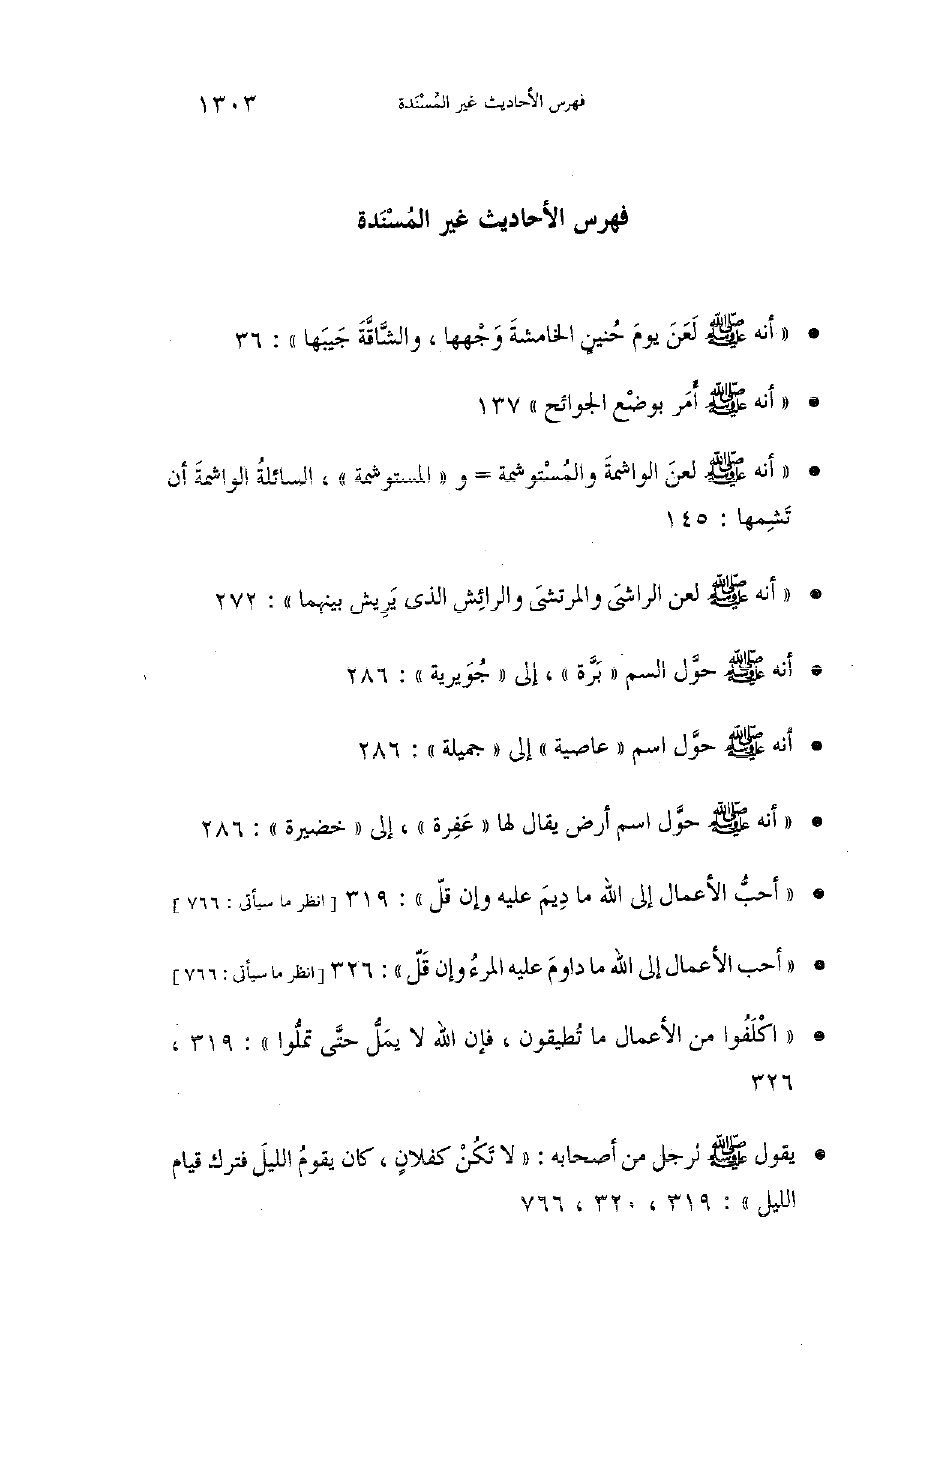 فهرس الأحاديث غير المُسْنَدة ١٣٠٣
فهرس الأحاديث غير المُسْنَدة
● « أنه ﷺ لَعَنَ يومَ حُنينٍ الخامشةَ وَجْهها ، والشَّاقَّةَ جَيبَها » : ٣٦
● « أنه ﷺ أَمَر بوضْع الجوائح » ١٣٧
● « أنه ﷺ لعنَ الواشمةَ والمُسْتوشمة = و « المستوشمة » ، السائلةُ الواشمةَ أن
تَشِمها : ١٤٥
● « أنه ﷺ لعن الراشىَ والمرتشىَ والرائِش الذى يَرِيش بينهما » : ٢٧٢
● أنه ﷺ حوَّل السم « بَرَّة » ، إلى « جُوَيرية » : ٢٨٦
● أنه ﷺ حوَّل اسم « عاصية » إلى « جميلة » : ٢٨٦
● « أنه ﷺ حوَّل اسم أرض يقال لها « عَفِرة » ، إلى « خضيرة » : ٢٨٦
● « أحبُّ الأعمال إلى الله ما دِيمَ عليه وإن قلّ » : ٣١٩ [ انظر ما سيأتى : ٧٦٦ ]
● « أحب الأعمال إلى الله ما داومَ عليه المرءُ وإن قَلّ » : ٣٢٦ [ انظر ما سيأتى : ٧٦٦ ]
● « اكْلَفُوا من الأعمال ما تُطيقون ، فإن الله لا يمَلُّ حتَّى تملُّوا » : ٣١٩ ،
٣٢٦
● يقول ﷺ لرجل من أصحابه : « لا تَكُنْ كفلانٍ ، كان يقومُ الليلَ فترك قيام
الليل » : ٣١٩ ، ٣٢٠ ، ٧٦٦